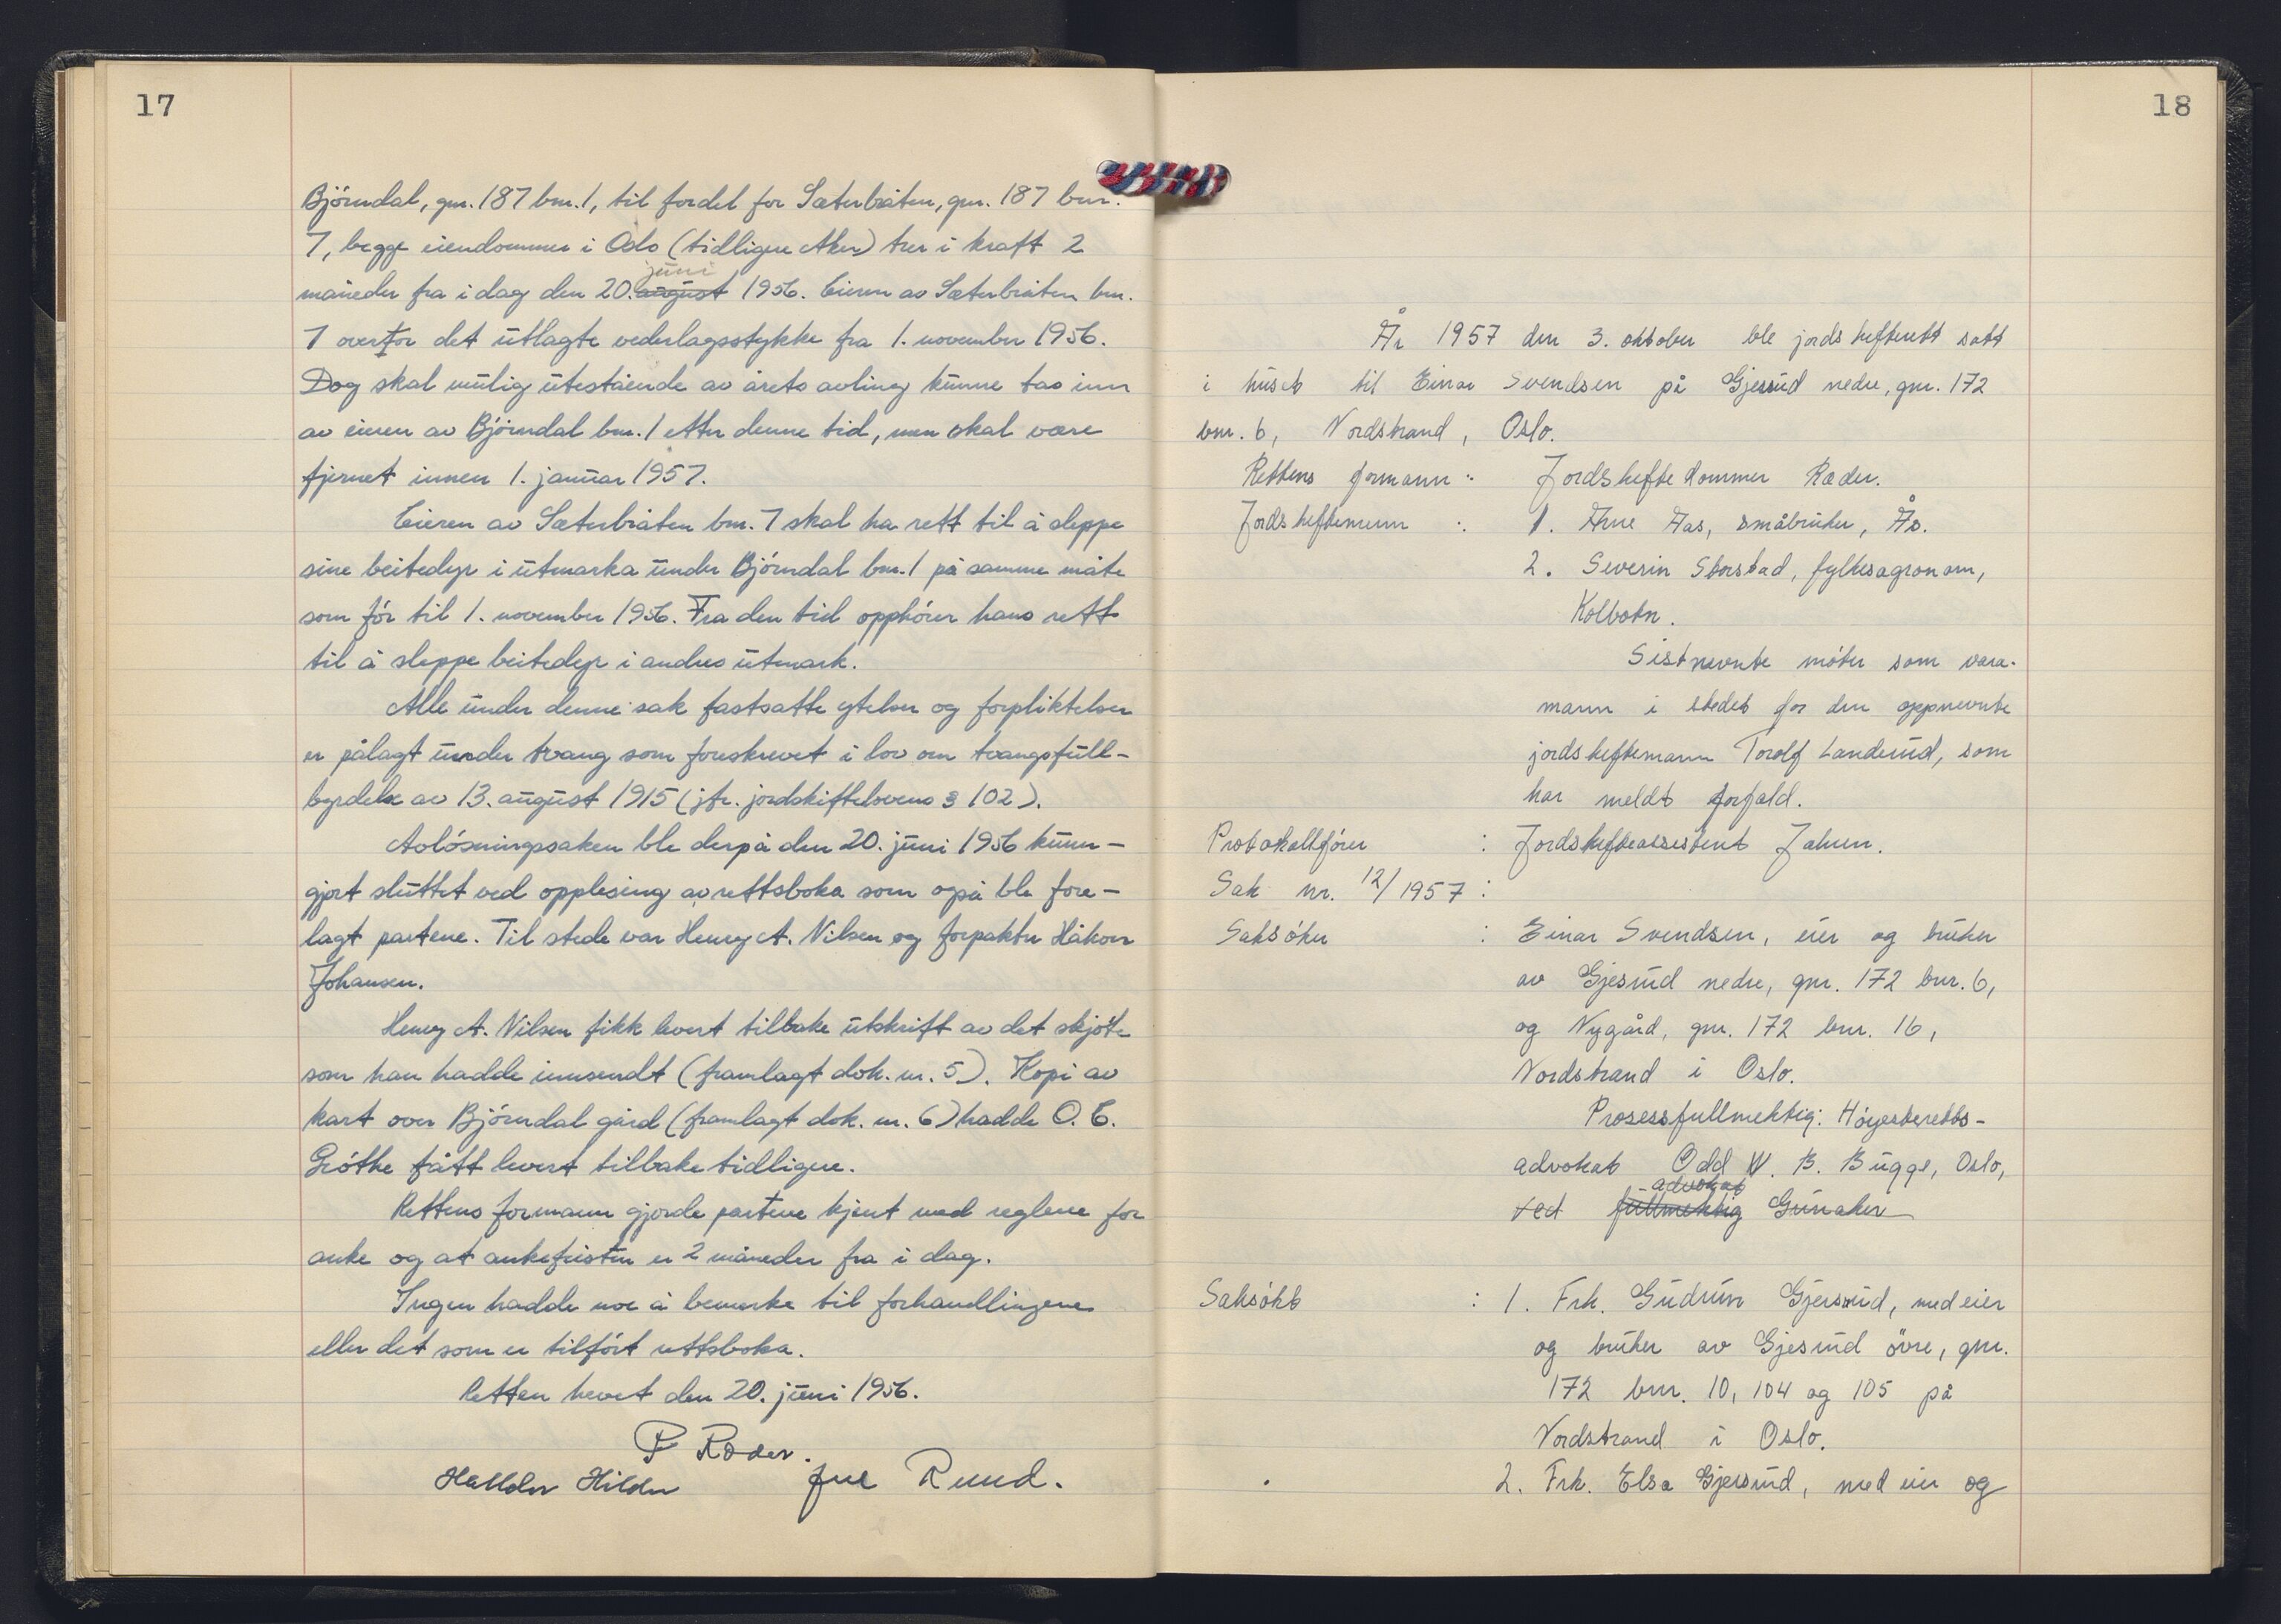 17
Bjørndal, gnr. 187 bnr. 1, til fordel for Sæterbråten, gnr. 187 bnr.
7, begge eiendommer i Oslo (tidligere Aker) trer i kraft 2
juni
måneder fra i dag den 20. august 1956. Eieren av Sæterbråten bnr.
7 overtar det utlagte vederlagsstykke fra 1. november 1956.
Dog skal mulig utestående av årets avling kunne tas inn
av eieren av Bjørndal bnr. 1 etter denne tid, men skal være
fjernet innen 1. januar 1957.
Eieren av Sæterbråten bnr. 7 skal ha rett til å sleppe
sine beitedyr i utmarka under Bjørndal bnr. 1 på samme måte
som før til 1. november 1956. Fra den tid opphører hans rett
til å sleppe beitedyr i andres utmark.
Alle under denne sak fastsatte ytelser og forpliktelser
er pålagt under tvang som foreskrevet i lov om tvangsfull-
byrdelse av 13. august 1915 (jfr. jordskiftelovens § 102).
Avløsningssaken ble derpå den 20. juni 1956 kunn-
gjort sluttet ved opplesing av rettsboka som også ble fore-
lagt partene. Til stede var Henry A. Nilsen og forpakter Håkon
Johansen.
Henry A. Nilsen fikk levert tilbake utskrift av det skjøte
som han hadde innsendt (framlagt dok. nr. 5). Kopi av
kart over Bjørndal gård (framlagt dok. nr. 6) hadde O. E.
Grøthe fått levert tilbake tidligere.
Rettens formann gjorde partene kjent med reglene for
anke og at ankefristen er 2 måneder fra i dag.
Ingen hadde noe å bemerke til forhandlingene
eller det som er tilført rettsboka.
Retten hevet den 20. juni 1956.
P Ræder.
Halldor Hilder Ruud.
18
År 1957 den 3. oktober ble jordskifterett satt
i huset til Einar Svendsen på Gjersrud nedre, gnr. 172
bnr. 6, Nordstrand, Oslo.
Rettens formann : Jordskiftedommer Ræder.
Jordskiftemenn : 1. Arne Aas, småbruker, Ås.
2. Severin Storstad, fylkesagronom,
Kolbotn.
Sistnevnte møter som vara-
mann i stedet for den oppnevnte
jordskiftemann Torolf Landerud, som
har meldt forfald.
Protokollfører : Jordskifteassistent Jahren.
Sak nr. 12/1957 :
Saksøker : Einar Svendsen, eier og bruker
av Gjesrud nedre, gnr. 172 bnr. 6,
og Nygård, gnr. 172 bnr. 16,
Nordstrand i Oslo.
Prosessfullmektig: Høyesteretts-
advokat Odd W. B. Bugge, Oslo,
advokat
ved fullmektig Gunaker
Saksøkt : 1. Frk. Gudrun Gjersrud, medeier
og bruker av Gjesrud övre, gnr.
172 bnr. 10, 104 og 105 på
Nordstrand i Oslo.
2. Frk. Elsa Gjersrud, medeier og